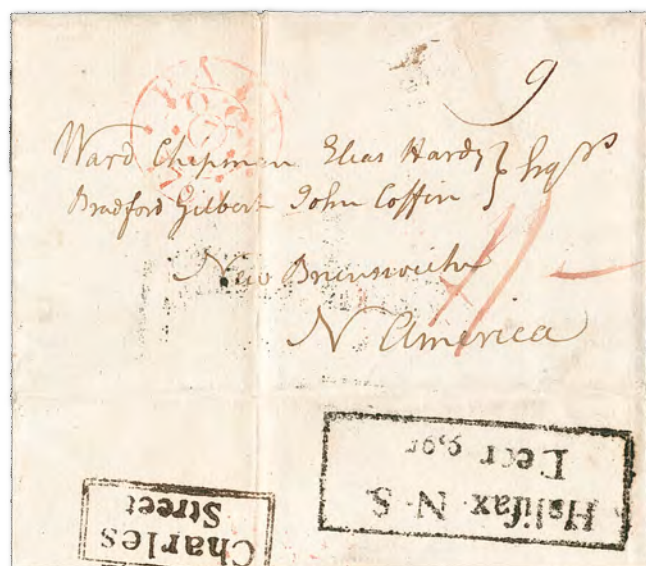 9
Ward Chipman Elias Hardy } Esqrs
Bradford Gilbert John Coffin
New Brunswick
N America
Halifax N.S.
Decr 9, 95
Charles
Street